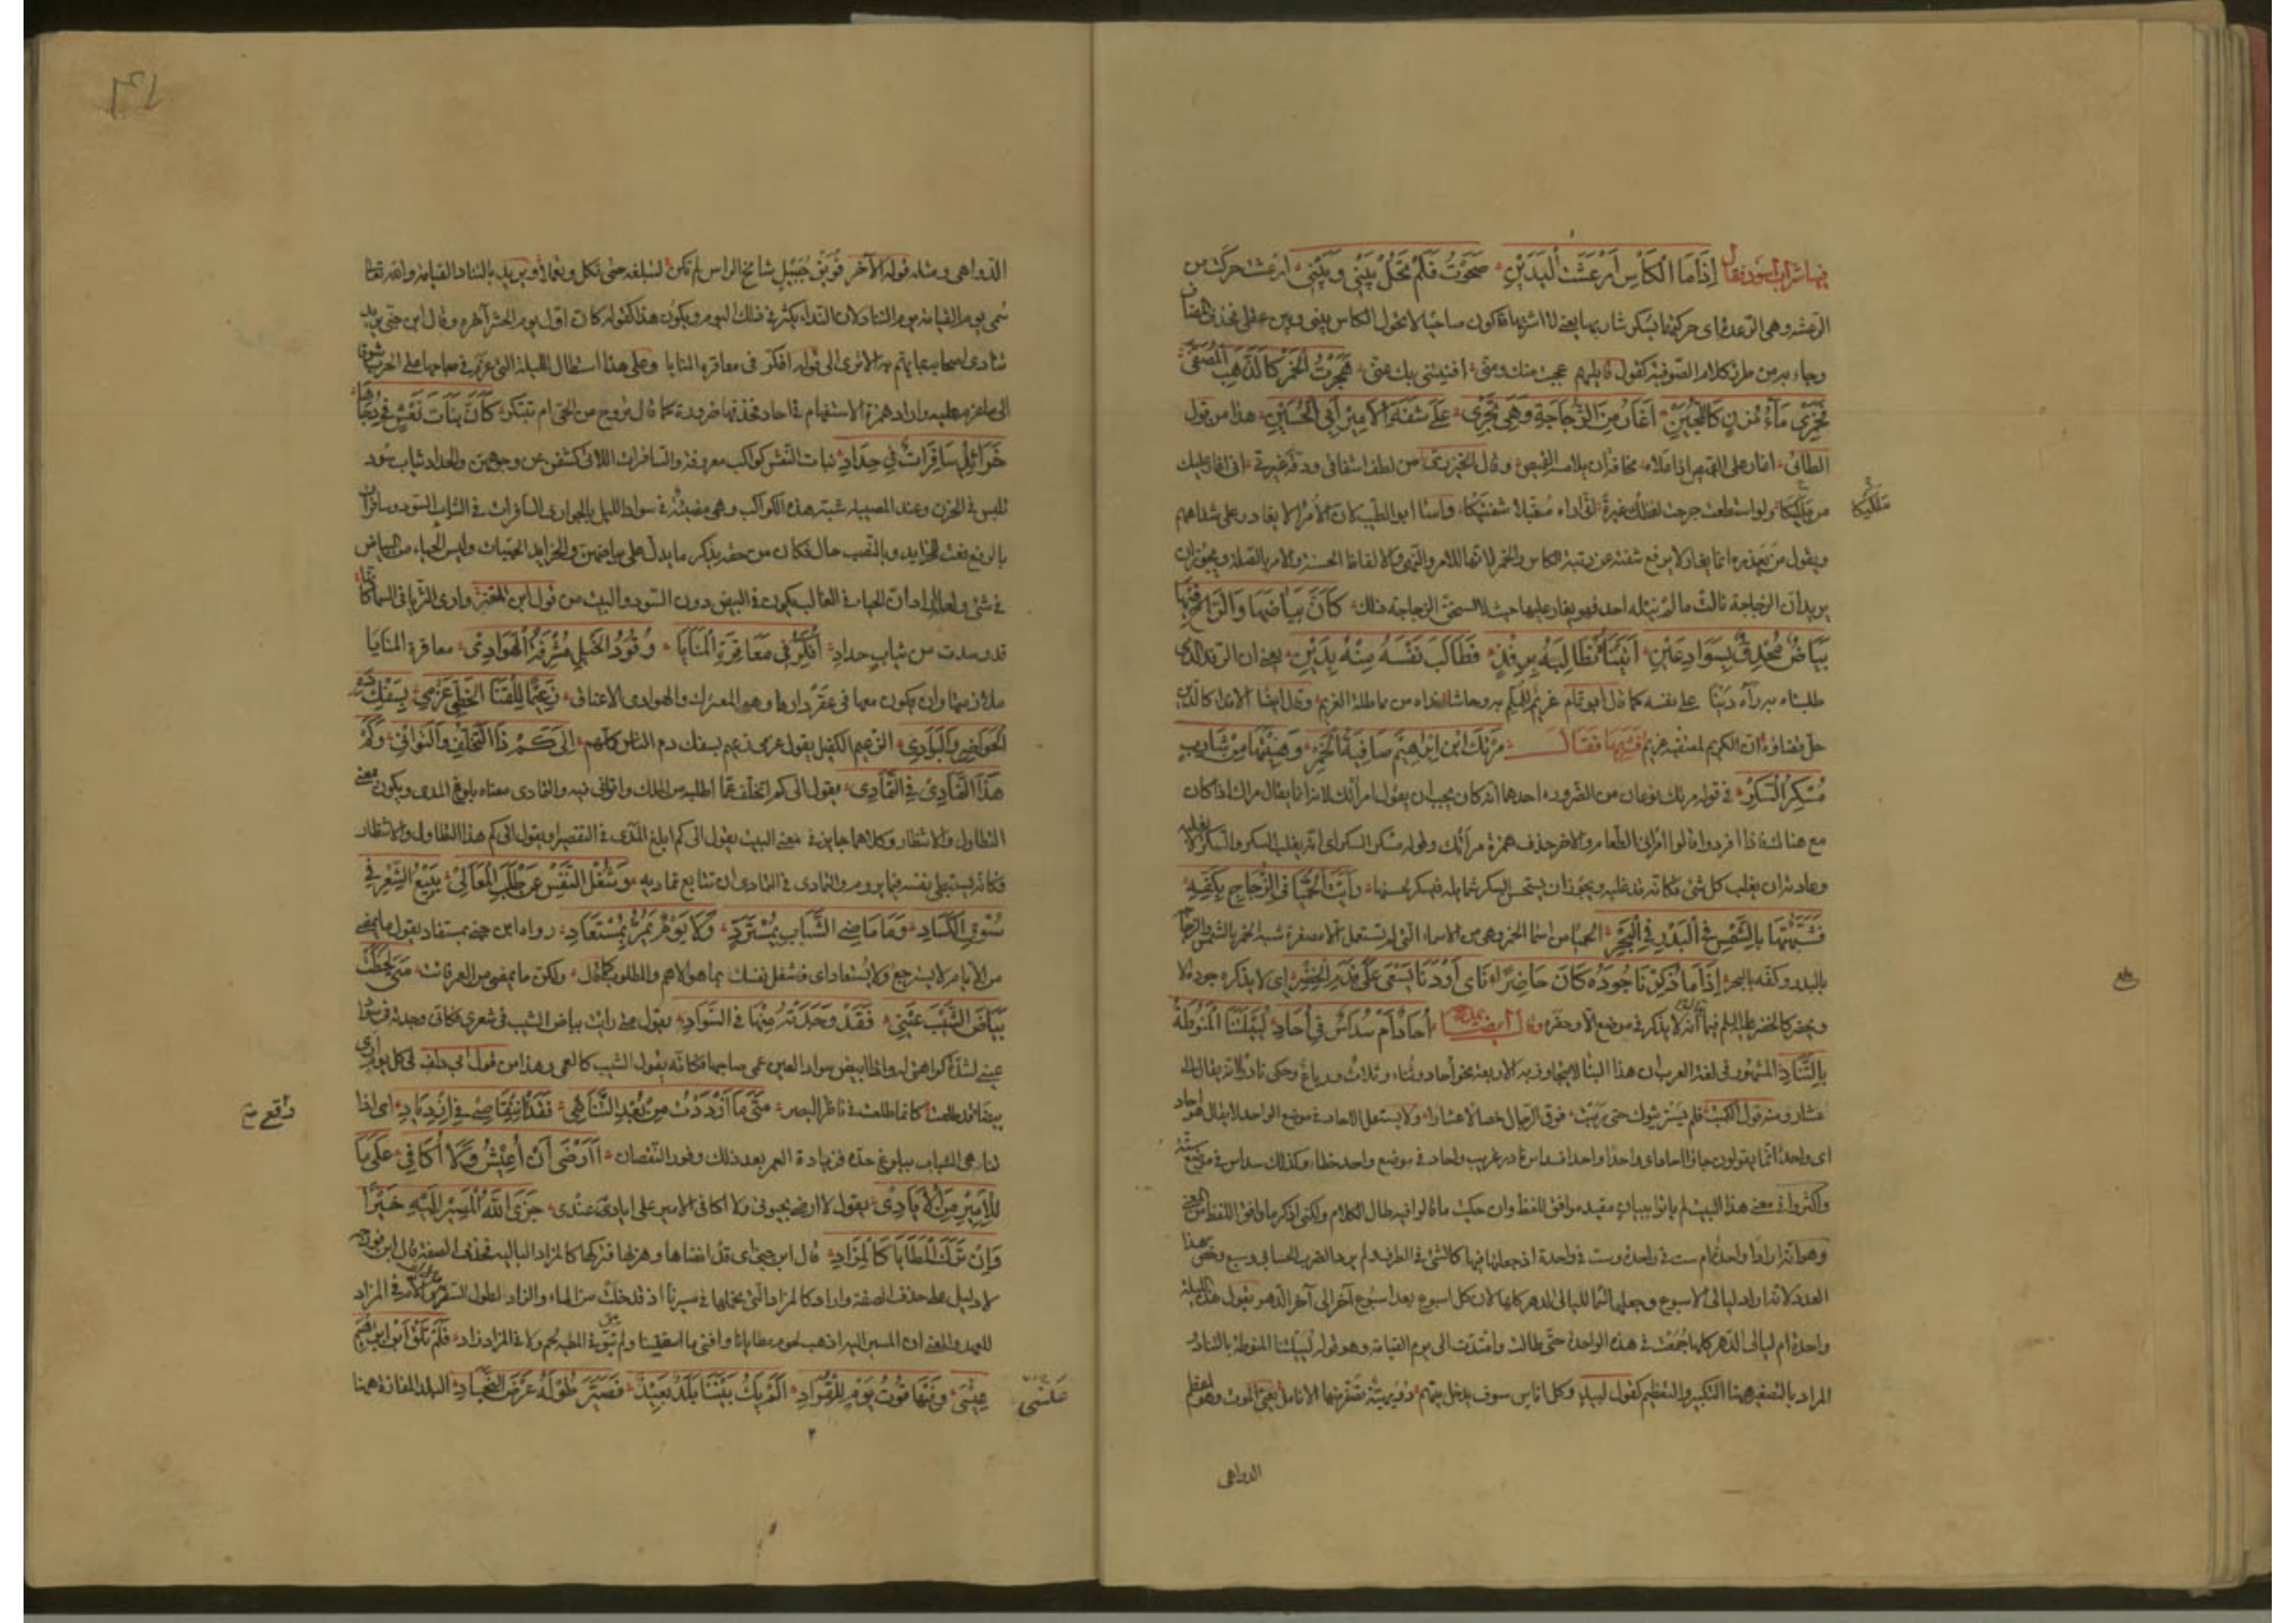 فيها شراب اسود فقال إِذَا مَا الْكَأْسُ أَرْعَشَتِ الْيَدَيْنِ صَحَوْتُ فَلَمْ تَحُلْ بَيْنِي وَبَيْنِي ارعشت حركت من
الرعشة وهي الرعدة اي حركتها بسكر شاربها يعني انا اشربها فاكون صاحيا لا تحول الكاس بيني وبين عقلي فحذف المضاف
وجاء به من طرز كلام الصوفية كقول قائلهم عجبت منك ومني افنيتني بك عني هَجَرْتُ الْخَمْرَ كَالذَّهَبِ الْمُصَفَّى
فَخَمْرِي مَاءُ مُزْنٍ كَاللُّجَيْنِ أَغَارُ مِنَ الزُّجَاجَةِ وَهِيَ تَجْرِي عَلَى شَفَةِ الْأَمِيرِ أَبِي الْحُسَيْنِ هذا من قول
الطائي اغار على القميص اذا علاه مخافة ان يلامسه القميص وقال الخبزرزي من لطف اشفاقي ودقة غيرتي اني اغار عليك
من ملكيكا ولو استطعت جرحت لفظك غيرة اني اراه مقبلا شفتيكا واساء ابو الطيب لان الامراء لا يغار على شفاههم
ويقول من يعذره انما يغار لانه يرفع شفته عن رتبة الكاس والخمر لانها للامر والنهي والالفاظ الحسنة والامر بالصلة ويجوز ان
يريد ان الزجاجة نالت ما لم ينله احد فهو يغار عليها حيث لا تستحق الزجاجة ذلك كَأَنَّ بَيَاضَهَا وَالرَّاحُ فِيهَا
بَيَاضٌ مُحْدِقٌ بِسَوَادِ عَيْنِ أَتَيْنَاهُ نُطَالِبُهُ بِرِفْدٍ فَطَالَبَ نَفْسَهُ مِنْهُ بِدَيْنِ يعني ان الرفد الذي
طلبناه به رآه دينا على نفسه كما قال ابو تمام غريم للملم به وحاشا نداه من مماطلة الغريم وقال ايضا الا ندا كالدين
حل قضاؤه ان الكريم لمعتفيه غريم فشربها فقال مَرَتْكَ ابْنَ إِبْرَاهِيمَ صَافِيَةُ الْخَمْرِ وَهُنِّئْتَهَا مِنْ شَارِبٍ
مُسْكِرِ السُّكْرِ في قوله مرتك نوعان من الضرورة احدهما انه كان يجب ان يقول امرأتك لانه انما يقال مراك اذا كان
مع هناك فاذا افردوا قالوا امراني الطعام والآخر حذف همزة مرأتك وقوله مسكر السكر اي انه يغلب السكر والسكر لا يغلبه
وعادته ان يغلب كل شئ فكانه قد غلبه ويجوز ان يستحسن السكر شمائله فيسكر بحسنها رَأَيْتُ الْحُمَيَّا فِي الزُّجَاجِ بِكَفِّهِ
فَشَبَّهْتُهَا بِالشَّمْسِ فِي الْبَدْرِ فِي الْبَحْرِ الحميا من اسماء الخمر وهي من الاسماء التي لم تستعمل الا مصغرة شبه الخمر بالشمس والزجاج
بالبدر وكفه بالبحر إِذَا مَا ذَكَرْنَا جُودَهُ كَانَ حَاضِرًا نَأَى أَوْ دَنَا يَسْعَى عَلَى قَدَمِ الْخِضْرِ اي لا يذكر جوده الا
ويحضر كالخضر عليه السلم فيما يقال انه لا يذكر في موضع الا وحضره وقال ايضا يمدحه أُحَادٌ أَمْ سُدَاسٌ فِي أُحَادِ لُيَيْلَتُنَا الْمَنُوطَةُ
بِالتَّنَادِ المشهور في لغة العرب ان هذا البناء لا يتجاوز به الاربعة نحو أحاد وثناء وثلاث ورباع وحكي نادرا انه يقال الى
عشار ومنه قول الكميت فلم يستريثوك حتى رميت فوق الرجال خصالا عشارا ولا يستعمل الاحاد في موضع الواحد لا يقال هو احاد
اي واحد انما يقولون جاؤا احاد احاد اي واحدا واحدا فسداس نادر غريب واحاد في موضع واحد خطاء وكذلك سداس في موضع ستة
واكثروا في معنى هذا البيت لم ياتوا ببيان مفيد موافق للفظ وان حكيت ما قالوا فيه طال الكلام ولكني اذكر ما وافق اللفظ من المعنى
وهو انه اراد واحدة ام ست في واحدة وست في واحدة اذ جعلتها فيها كالشئ في الظرف ولم يرد الضرب الحسابي وسبع وخص هذا
العدد لانه اراد ليالي الاسبوع وجعلها اسما لليالي الدهر كلها لان كل اسبوع بعد اسبوع آخر الى آخر الدهر يقول هذه الليلة
واحدة ام ليالي الدهر كلها جمعت في هذه الواحدة حتى طالت وامتدت الى يوم القيامة وهو قوله لييلتنا المنوطة بالتناد
المراد بالتصغير ههنا التكبير والتعظيم كقول لبيد وكل اناس سوف يدخل بينهم دويهية تصفر منها الانامل يعني الموت وهو اعظم
الدواهي
ملكيكا
بلغ
الدواهي ومثله قول الآخر فويق جبيل شامخ الراس لم تكن لتبلغه حتى تكل وتعملا ويريد بالتناد القيامة والله تعالى
سمى يوم القيامة يوم التناد لان النداء يكثر في ذلك اليوم ويكون هذا كقوله كان اول يوم الحشر آخره وقال ابن جني يريد
تنادي اصحابه بما يهم به الا ترى الى قوله افكر في معاقرة المنايا وعلى هذا استطال الليلة التي عزم في صباحها على الحرب شوقا
الى ما عزم عليه واراد همزة الاستفهام في احاد فحذفها ضرورة كما قال تروح من الحي ام تبتكر كَأَنَّ بَنَاتِ نَعْشٍ فِي دُجَاهَا
خَرَائِدُ سَافِرَاتٌ فِي حِدَادِ بنات النعش كواكب معروفة والسافرات اللاتي كشفن عن وجوههن والحداد ثياب سود
تلبس في الحزن وعند المصيبة شبه هذه الكواكب وهي مضيئة في سواد الليل بالجواري السافرات في الثياب السود وسافرات
بالرفع نعت للخرايد وبالنصب حال فكان من حقه يذكر ما يدل على بياضهن والخرايد الحييات وليس الحياء من البياض
في شئ ولعله اراد ان الحياء في الغالب يكون في البيض دون السود والبيت من قول ابن المعتز وارى الثريا في السماء كانها
قدم تبدت من ثياب حداد أُفَكِّرُ فِي مُعَاقَرَةِ الْمَنَايَا وَقَوْدِ الْخَيْلِ مُشْرِفَةَ الْهَوَادِي معاقرة المنايا
ملازمتها وان يكون معها في عقر دارها وهو المعترك والهوادي الاعناق زَعِيمًا لِلْقَنَا الْخَطِّيِّ عَزْمِي بِسَفْكِ دَمِ
الْحَوَاضِرِ وَالْبَوَادِي الزعيم الكفيل يقول عزمي زعيم بسفك دم الناس كلهم إِلَى كَمْ ذَا التَّخَلُّفُ وَالتَّوَانِي وَكَمْ
هَذَا التَّمَادِي فِي التَّمَادِي يقول الى كم اتخلف عما اطلبه من الملك واتوانى فيه والتمادي معناه بلوغ المدى ويكون بمعنى
التطاول والانتظار وكلاهما جايز في معنى البيت يقول الى كم ابلغ المدى في التقصير او يقول الى كم هذا التطاول والانتظار
وكانه يستبطئ نفسه فيما يروم والتمادي في التمادي ان تتابع تماديه وَشُغْلُ النَّفْسِ عَنْ طَلَبِ الْمَعَالِي بِبَيْعِ الشِّعْرِ فِي
سُوقِ الْكَسَادِ وَمَا مَاضِي الشَّبَابِ بِمُسْتَرَدٍّ وَلَا يَوْمٌ يَمُرُّ بِمُسْتَعَادِ رواه ابن جني بمستفاد يقول ما يمضي
من الايام لا يسترجع ولا يستعاد اي فشغل نفسك بما هو الاهم والمطلوب كما قال ولكن ما يمضي من العمر فائت مَتَى لَحَظَتْ
بَيَاضَ الشَّيْبِ عَيْنِي فَقَدْ وَجَدَتْهُ مِنْهَا فِي السَّوَادِ يقول متى رات بياض الشيب في شعري فكاني وجدته في سواد
عيني لشدة كراهتي له واذا ابيض سواد العين عمي صاحبها فكانه يقول الشيب كالعمى وهذا من قول ابي دلف في كل يوم ارى
بيضاء قد طلعت كانما طلعت في ناظر البصر مَتَى مَا ازْدَدْتُ مِنْ بُعْدِ التَّنَاهِي فَقَدْ وَقَعَ انْتِقَاصِي فِي ازْدِيَادِ اي اذا
تناهى الشباب ببلوغ حده فزيادة العمر بعد ذلك وفور النقصان أَأَرْضَى أَنْ أَعِيشَ وَلَا أُكَافِي عَلَى مَا
لِلْأَمِيرِ مِنَ الْأَيَادِي يقول لا ارضى بحيوتي ولا اكافئ الامير على اياديه عندي جَزَى اللهُ الْمَسِيرَ إِلَيْهِ خَيْرًا
وَإِنْ تَرَكَ الْمَطَايَا كَالْمَزَادِ قال ابن جني اي قد انضاها وهزلها فتركها كالمزاد البالية فحذف الصفة قال ابن فورجه
لا دليل على حذف الصفة واراد كالمزاد التي نحملها في مسيرنا اذ قد خلت من الماء والزاد لطول السفر والالف واللام في المزاد
للعهد والمعنى ان المسير اليه اذهب لحوم مطايانا وافنى ما استقينا ولم يبق في المطية لحم ولا في المزاد زاد فَلَمْ تَلْقَ ابْنَ إِبْرَاهِيمَ
عِيسِي وَفِيهَا قُوتُ يَوْمٍ لِلْقُرَادِ أَلَمْ يَكُ بَيْنَنَا بَلَدٌ بَعِيدٌ فَصَيَّرَ طُولَهُ عَرْضَ النِّجَادِ البلد المفازة ههنا
عنسي